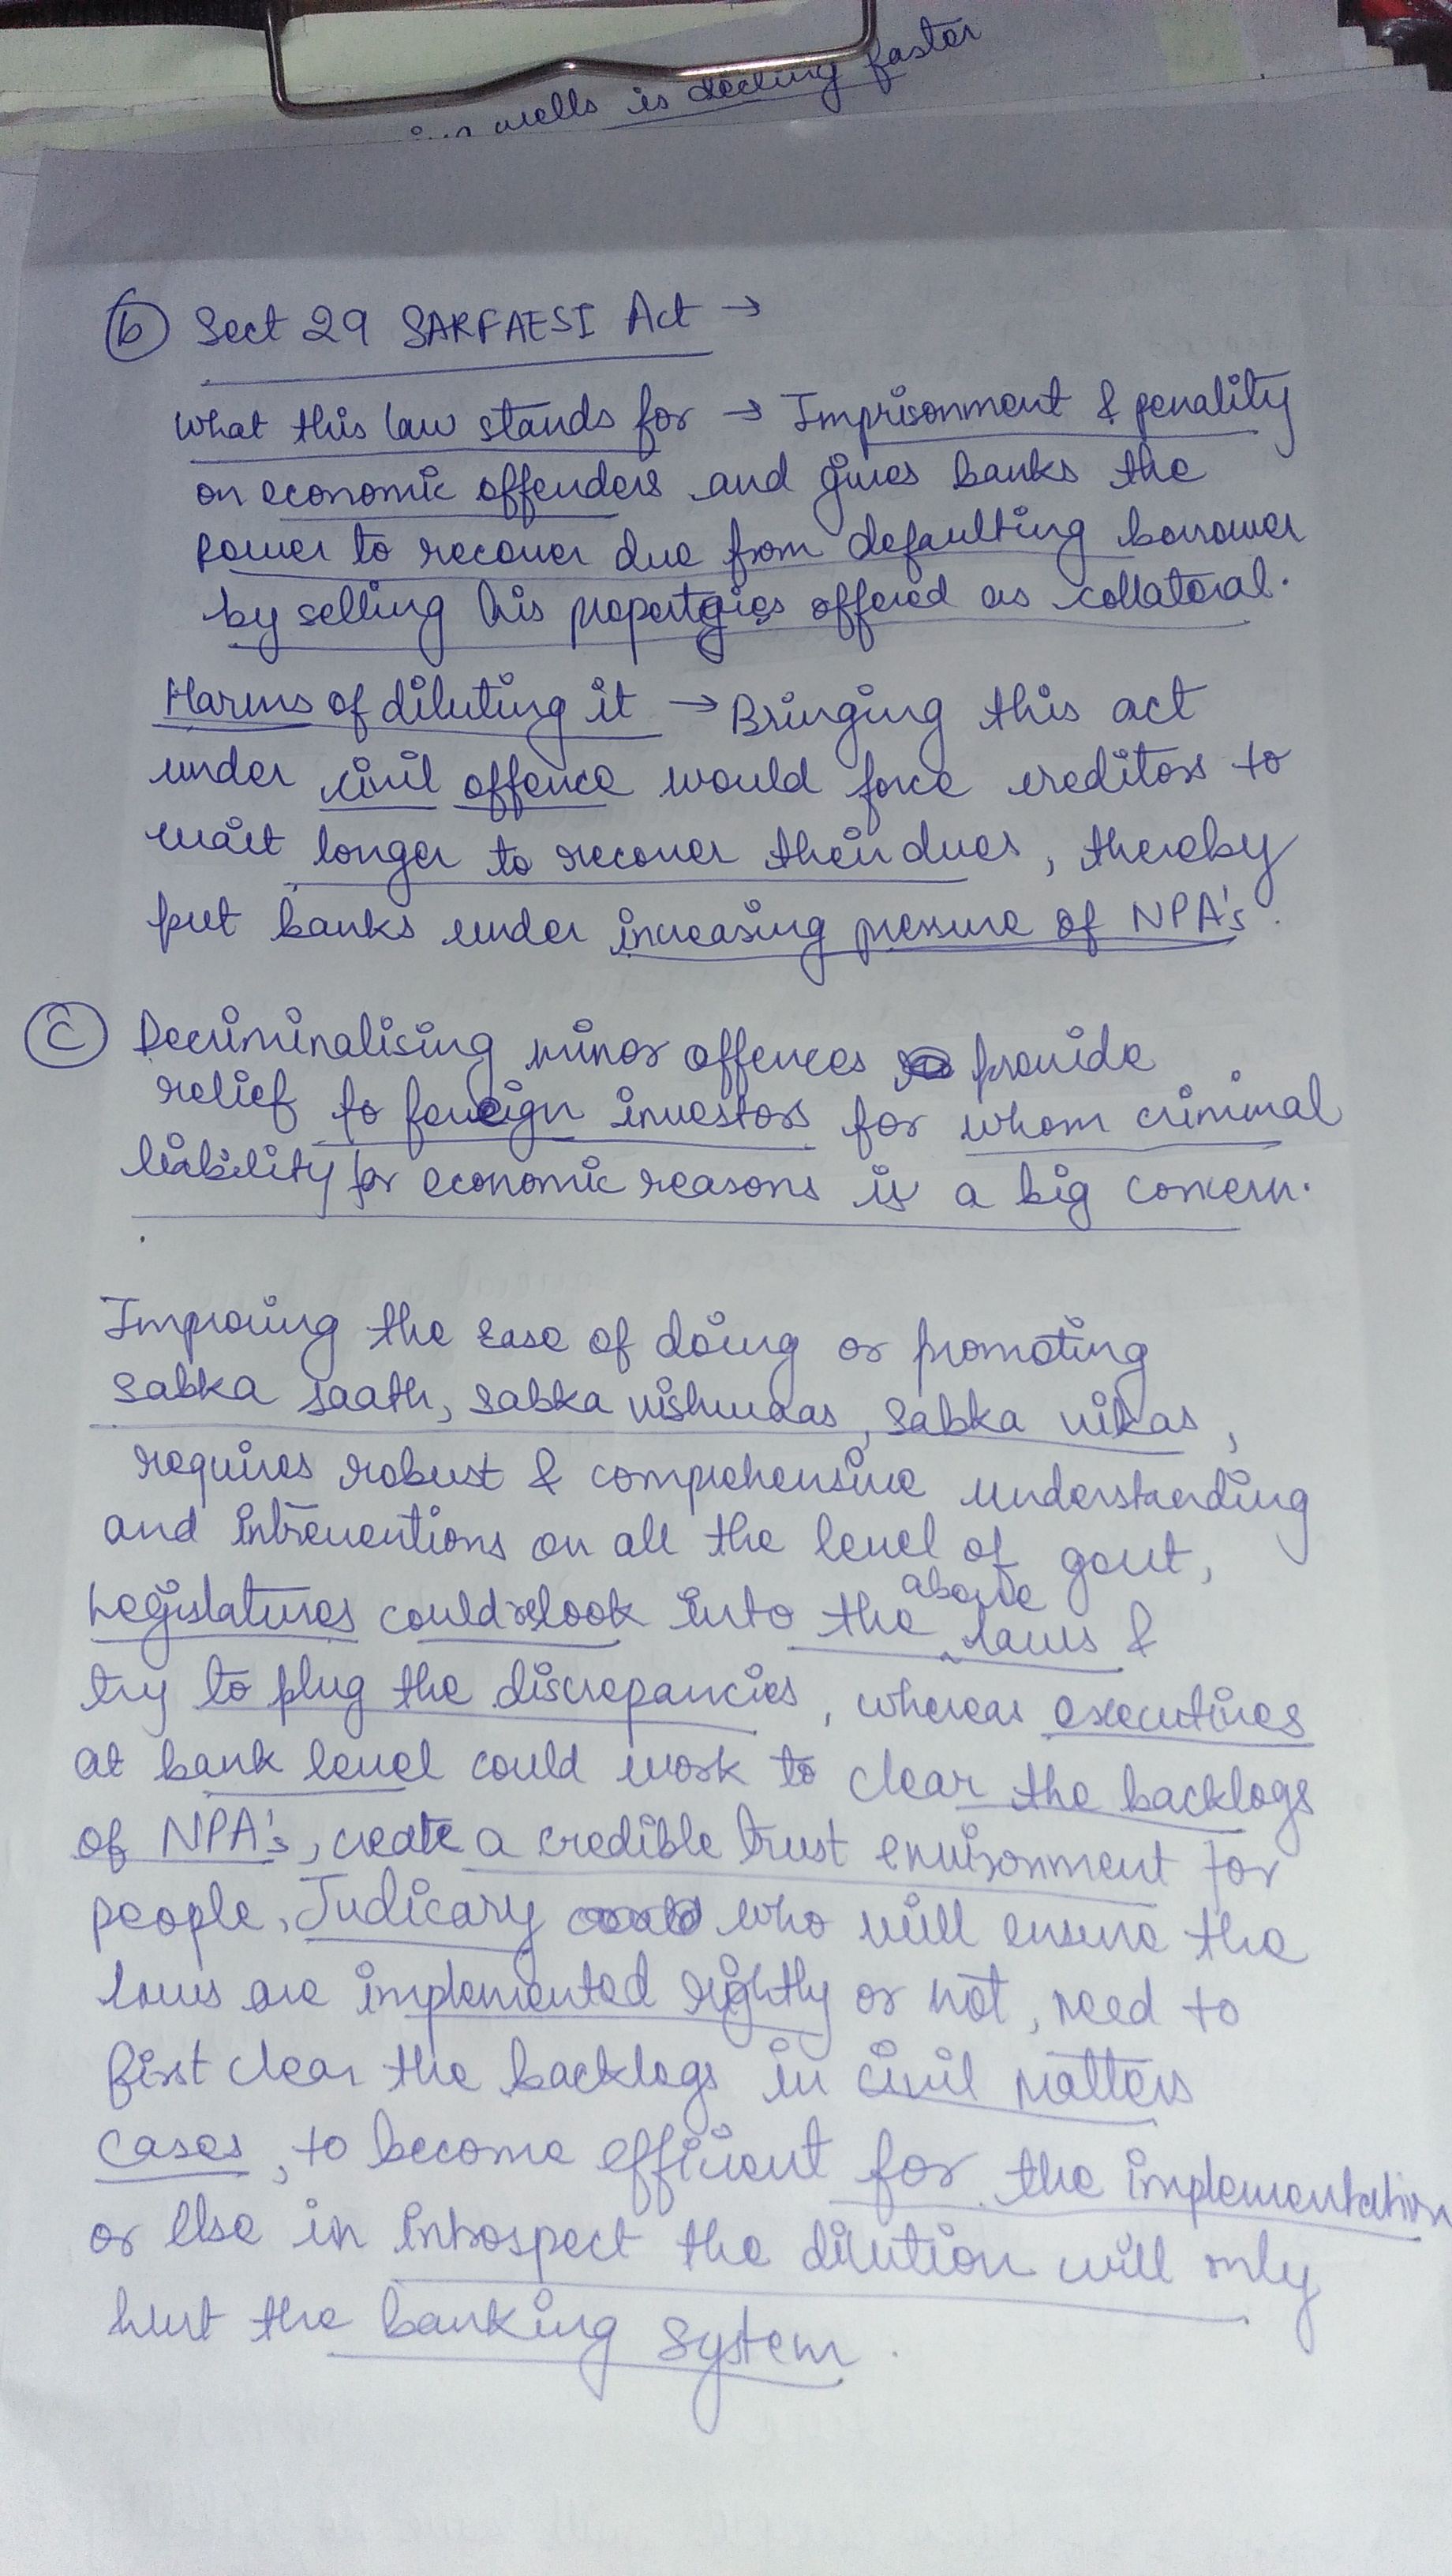 wells is decling faster
(b) Sect 29 SARFAESI Act →
What this law stands for → Imprisonment & penality
on economic offenders and gives banks the
power to recover due from defaulting borrower
by selling his properties offered as collatoral.
Harms of diluting it → Bringing this act
under civil offence would force creditors to
wait longer to recover their dues, thereby
put banks under increasing pressure of NPA's.
(C) Decriminalising minor offences provide
relief to foreign investors for whom criminal
liability for economic reasons is a big concern.
Improving the ease of doing or promoting
sabka saath, sabka vishwaas, sabka vikas,
requires robust & comprehensive understanding
and intreventions on all the level of govt,
above
Legislatures could relook into the laws &
try to plug the discrepancies, whereas executives
at bank level could work to clear the backlogs
of NPA's, create a credible trust environment for
people, Judicary who will ensure the
laws are implemented rightly or not, need to
first clear the backlogs in civil matters
cases, to become efficient for the implementation
or else in introspect the dilution will only
hurt the banking system.